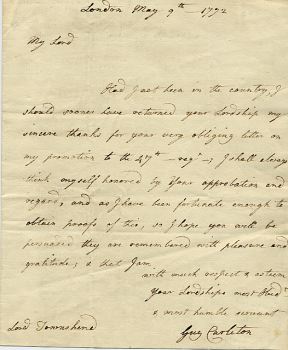 London May 9th - 1772
My Lord
Had I not been in the country, I
should sooner have returned your Lordship my
sincere thanks for your very obliging letter on
my promotion to the 47th - regt -, I shall always
think myself honored by your approbation and
regard, and as I have been fortunate enough to
obtain proofs of , so I hope you will be
persuaded they are remembered with pleasure and
gratitude; & that I am
with much respect & esteem
Your Lordships most
& most humble servant
Guy Carleton
Lord Townshend